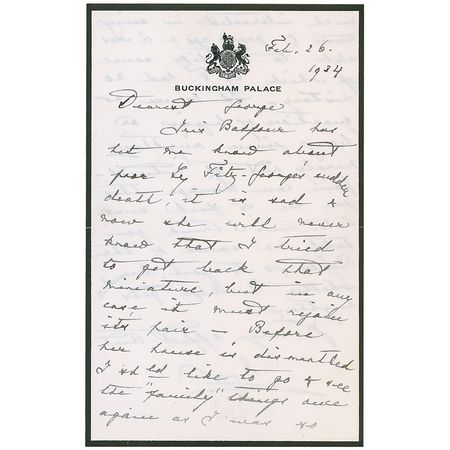 Feb. 26.
1934
BUCKINGHAM PALACE
Dearest George
Iris Balfour has
let me know about
poor Ly Fitz-George's sudden
death, it is sad &
now she will never
know that I tried
to get back that
miniature, but in any
case it must rejoin
its pair — Before
her house is dismantled
I shld like to go & see
the "family" things once
again as I was so